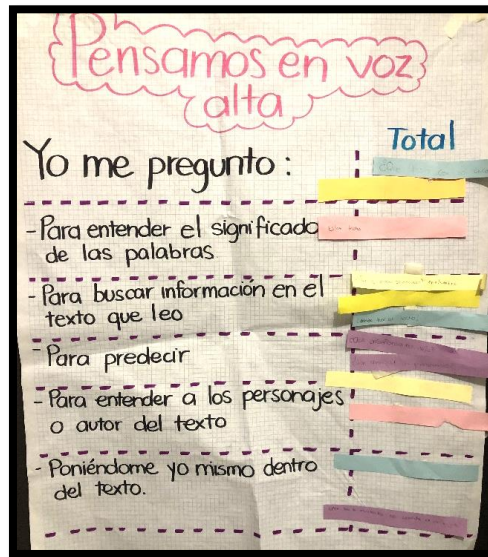 Pensamos en voz
alta
Total
Yo me pregunto:
- Para entender el significado
de las palabras
- Para buscar información en el
texto que leo
- Para predecir
- Para entender a los personajes
o autor del texto
- Poniéndome yo mismo dentro
del texto.